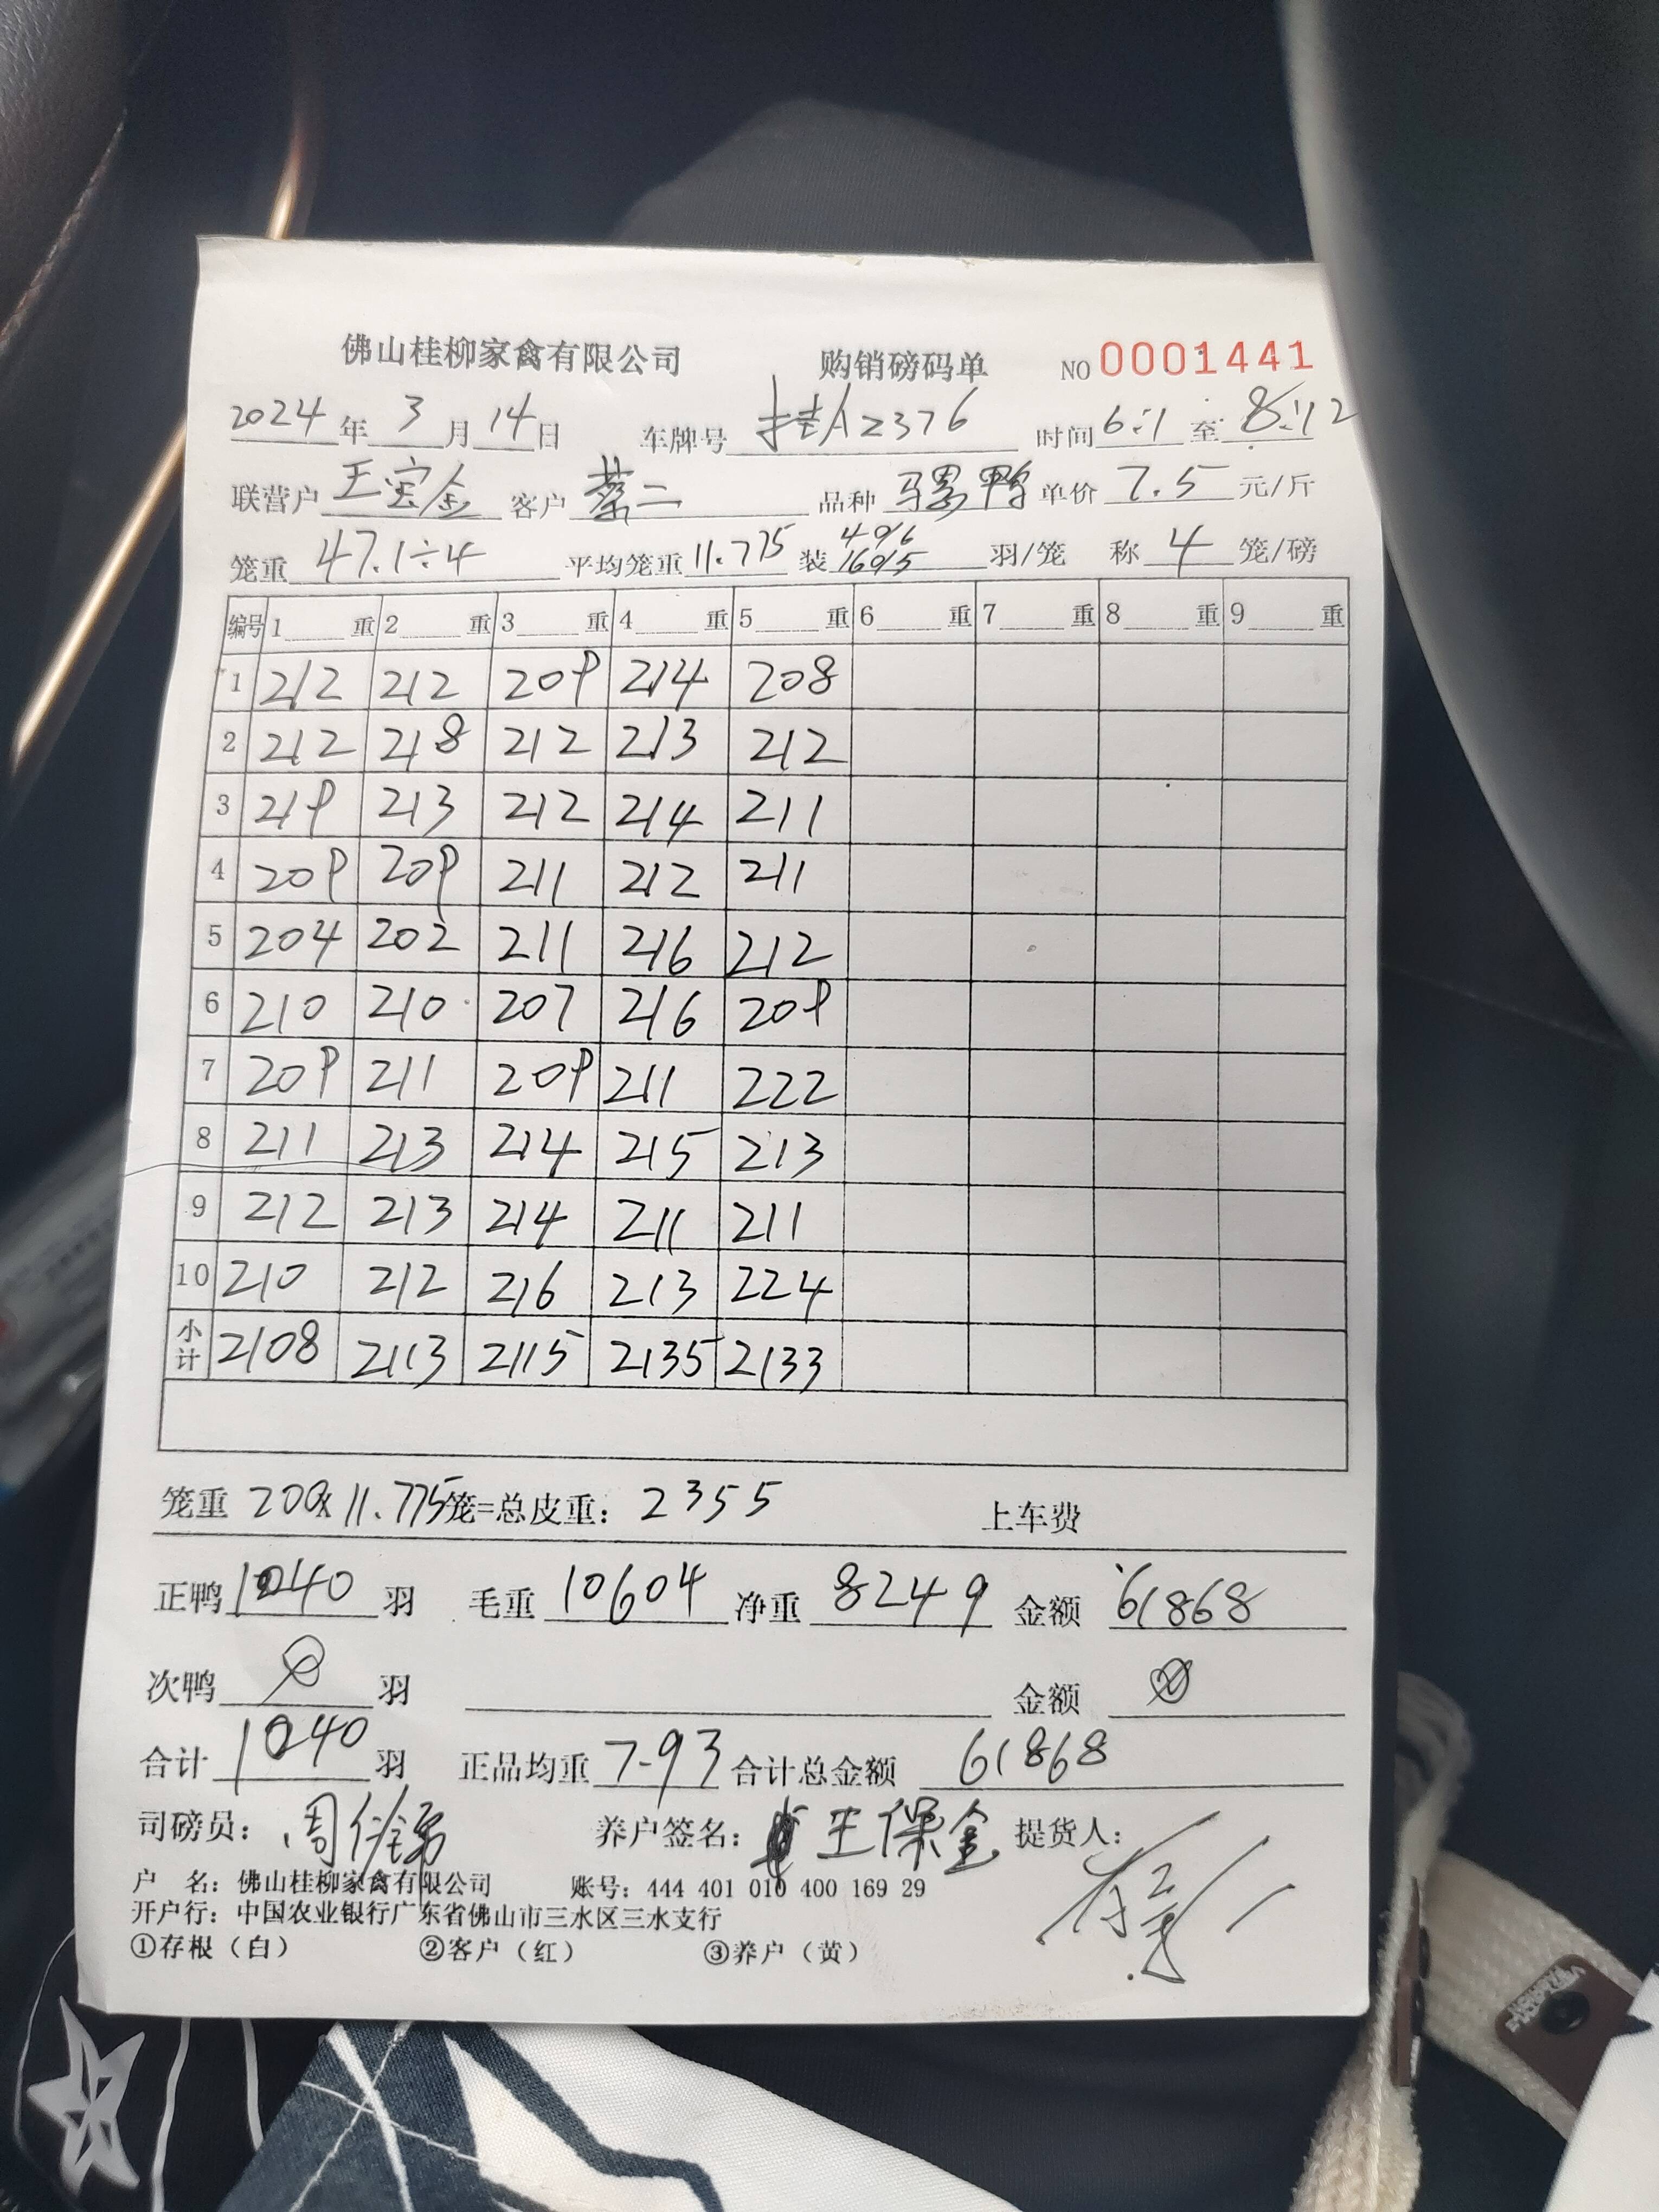 佛山桂柳家禽有限公司 购销磅码单 NO 0001441
2024年3月14日 车牌号 桂A2376 时间 6:1 至 8:12
联营户 王宝金 客户 蔡二 品种 骡鸭 单价 7.5 元/斤
笼重 47.1÷4 平均笼重 11.775 装 40/6 160/5 羽/笼 称 4 笼/磅
编号 1 重 2 重 3 重 4 重 5 重 6 重 7 重 8 重 9 重
1 212 212 209 214 208
2 212 218 212 213 212
3 219 213 212 214 211
4 209 209 211 212 211
5 204 202 211 216 212
6 210 210 207 216 209
7 209 211 209 211 222
8 211 213 214 215 213
9 212 213 214 211 211
10 210 212 216 213 224
小计 2108 2113 2115 2135 2133
笼重 200x11.775 笼=总皮重: 2355 上车费
正鸭 1040 羽 毛重 10604 净重 8249 金额 61868
次鸭 羽 金额
合计 1040 羽 正品均重 7.93 合计总金额 61868
司磅员: 养户签名: 王保金 提货人:
户 名: 佛山桂柳家禽有限公司 账号: 444 401 010 400 169 29
开户行: 中国农业银行广东省佛山市三水区三水支行
①存根(白) ②客户(红) ③养户(黄)